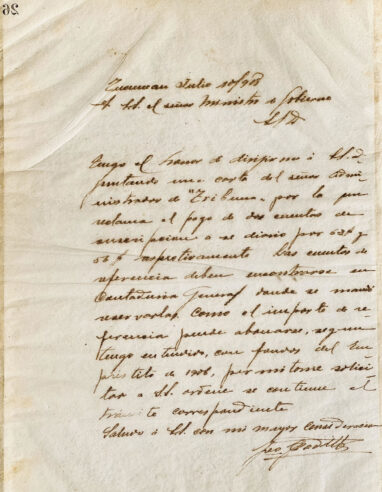 26
Tucuman Julio 10/908
A S.S. el señor Ministro de Gobierno
S/D
Tengo el honor de dirijirme á S.S. ad-
juntando una carta del señor Admi-
nistrador de "Tribuna" por la que
reclama el pago de dos cuentas de
suscripcion a su diario por
respectivamente Las cuentas de
referencia deben encontrarse en
Contaduria General donde se mandó
reservarlas. Como el importe de re-
ferencia puede abonarse, segun
tengo entendido, con fondos del Em-
préstito de 1906, permitome solici-
tar á S.S. ordene se continue el
trámite correspondiente
Saludo á S.S. con mi mayor consideracion
Padilla